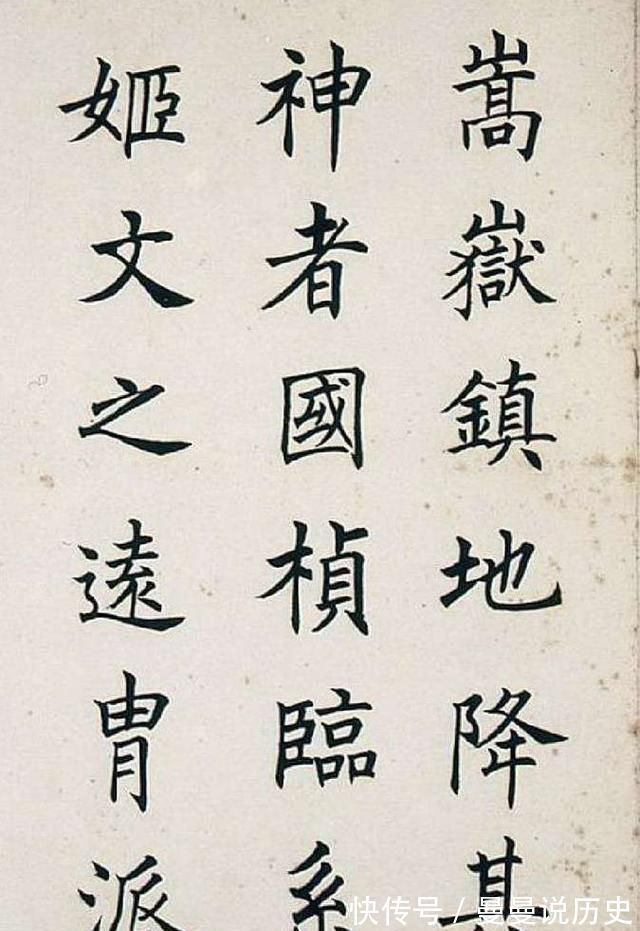 嵩嶽鎮地降其
神者國楨臨系
姬文之遠胄派
快传号/曼曼说历史